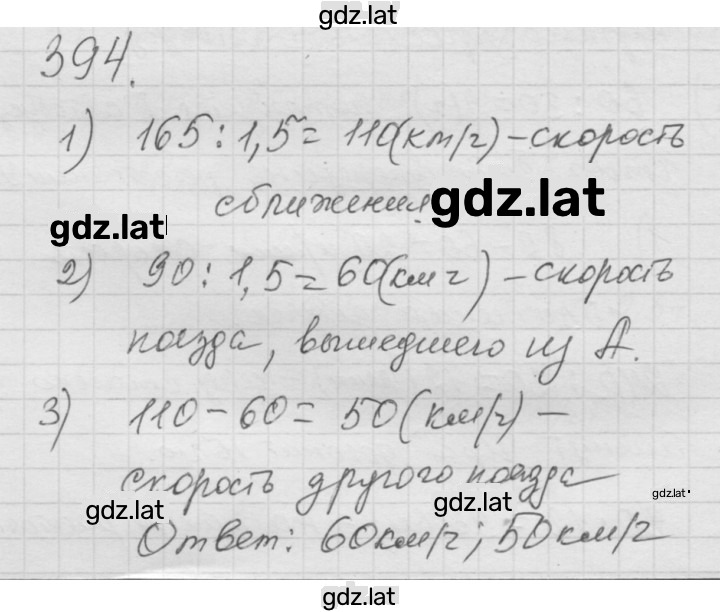 gdz.lat
394.
1) 165 : 1,5 = 110(км/г) - скорость
сближения.
gdz.lat
gdz.lat
2) 90 : 1,5 = 60(км г) - скорость
поезда, вышедшего из А.
3) 110 - 60 = 50 (км/г) -
скорость другого поезда
gdz.lat
gdz.lat
gdz.lat
Ответ: 60км/г; 50км/г
gdz.lat